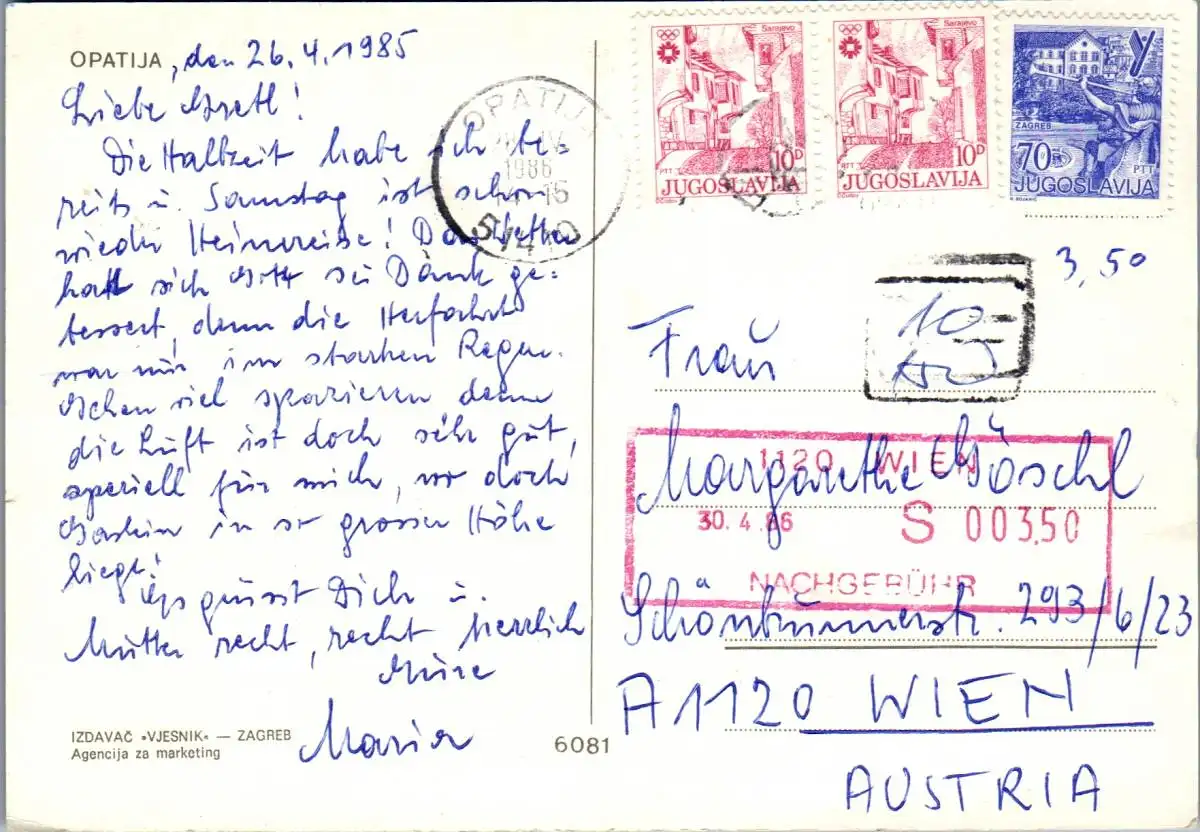 OPATIJA, den 26.4.1985
Liebe Gretl!
Die Halbzeit habe ich be-
reits u. Samstag ist schon
wieder Heimreise! Das Wetter
hat sich Gott sei Dank ge-
bessert, denn die Herfahrt
war nur im starken Regen.
Gehen viel spazieren denn
die Luft ist doch sehr gut,
speziell für mich, wo doch
Gastein in so grosser Höhe
liegt!
Es grüsst Dich u.
Mutter recht, recht herzlich
Maria
IZDAVAČ »VJESNIK« — ZAGREB
Agencija za marketing
6081
OPATIJA
1986
51410
Sarajevo
PTT
10D
JUGOSLAVIJA
Sarajevo
PTT
10D
JUGOSLAVIJA
ZAGREB
PTT
70D
JUGOSLAVIJA
3,50
10
Frau
Margarethe Göschl
1120 WIEN
30.4.86 S 003,50
NACHGEBÜHR
Schönbrunnerstr. 293/6/23
A 1120 WIEN
AUSTRIA